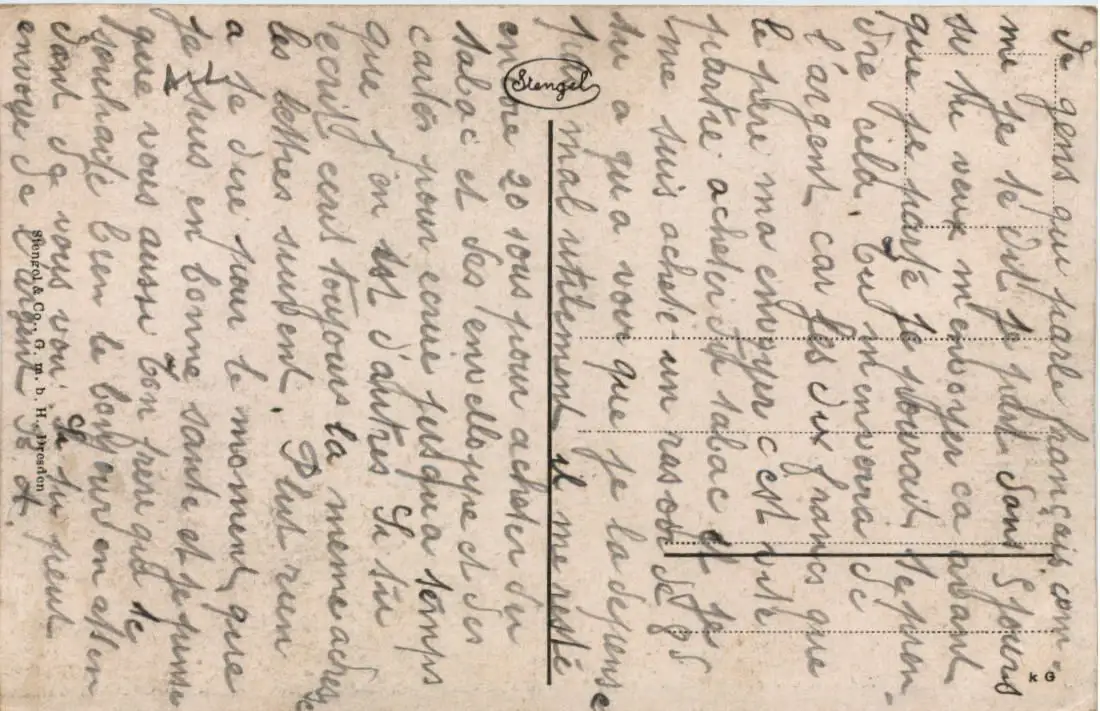 de gens qui parle français com
me je te dit je part dans 5 jours
si tu veux m'envoyer ca avant
que je parte je pourrait te pren
dre cela. Tu m'enverra de
l'argent car les dix francs que
le père m'a envoyer c'est vite
partie acheter du tabac et je
me suis acheté un rasoir de 8
tu a qu'a voir que je la depense
pas mal utilement il me reste
encore 20 sous pour acheter du
tabac et des envelloppe et des
cartes pour ecrire jusqu'a temps
que j'en est d'autres Si tu
ecrist ecris toujours la meme adresse
les lettres suivent. Plut rien
a te dire pour le moment que
je suis en bonne sante et je pense
que vous aussi ton frère qui te
souhaite bien le bonjour en atten
dant de vous voir. Si tu peut
envoie de l'argent
Stengel
Stengel & Co., G. m. b. H., Dresden
k G